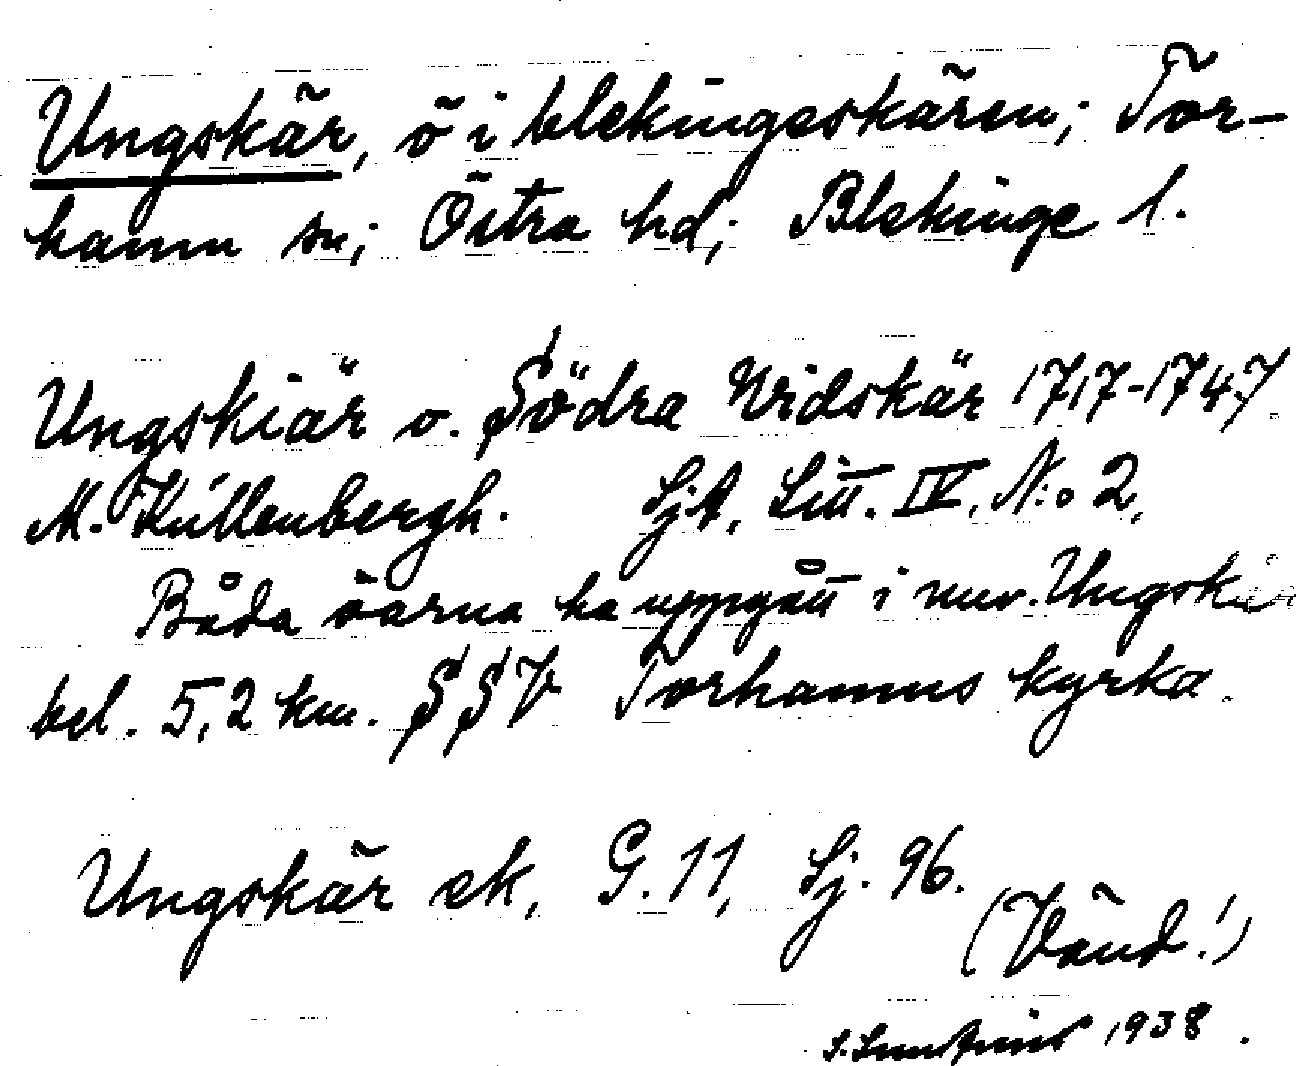 Ungskär, ö i blekingeskären; Tor-
hamn sn; Östra hd; Blekinge l.
Ungskiär o. Södra Uridskär 1717-1747
M. Küllenbergh. SjA, Litt. IV, N:o 2,
Båda öarna ha uppgått i nuv. Ungskär
bel. 5,2 km. SSV Torhamns kyrka.
Ungskär ek, G. 11, Sj. 96.
(Vänd!)
1938.